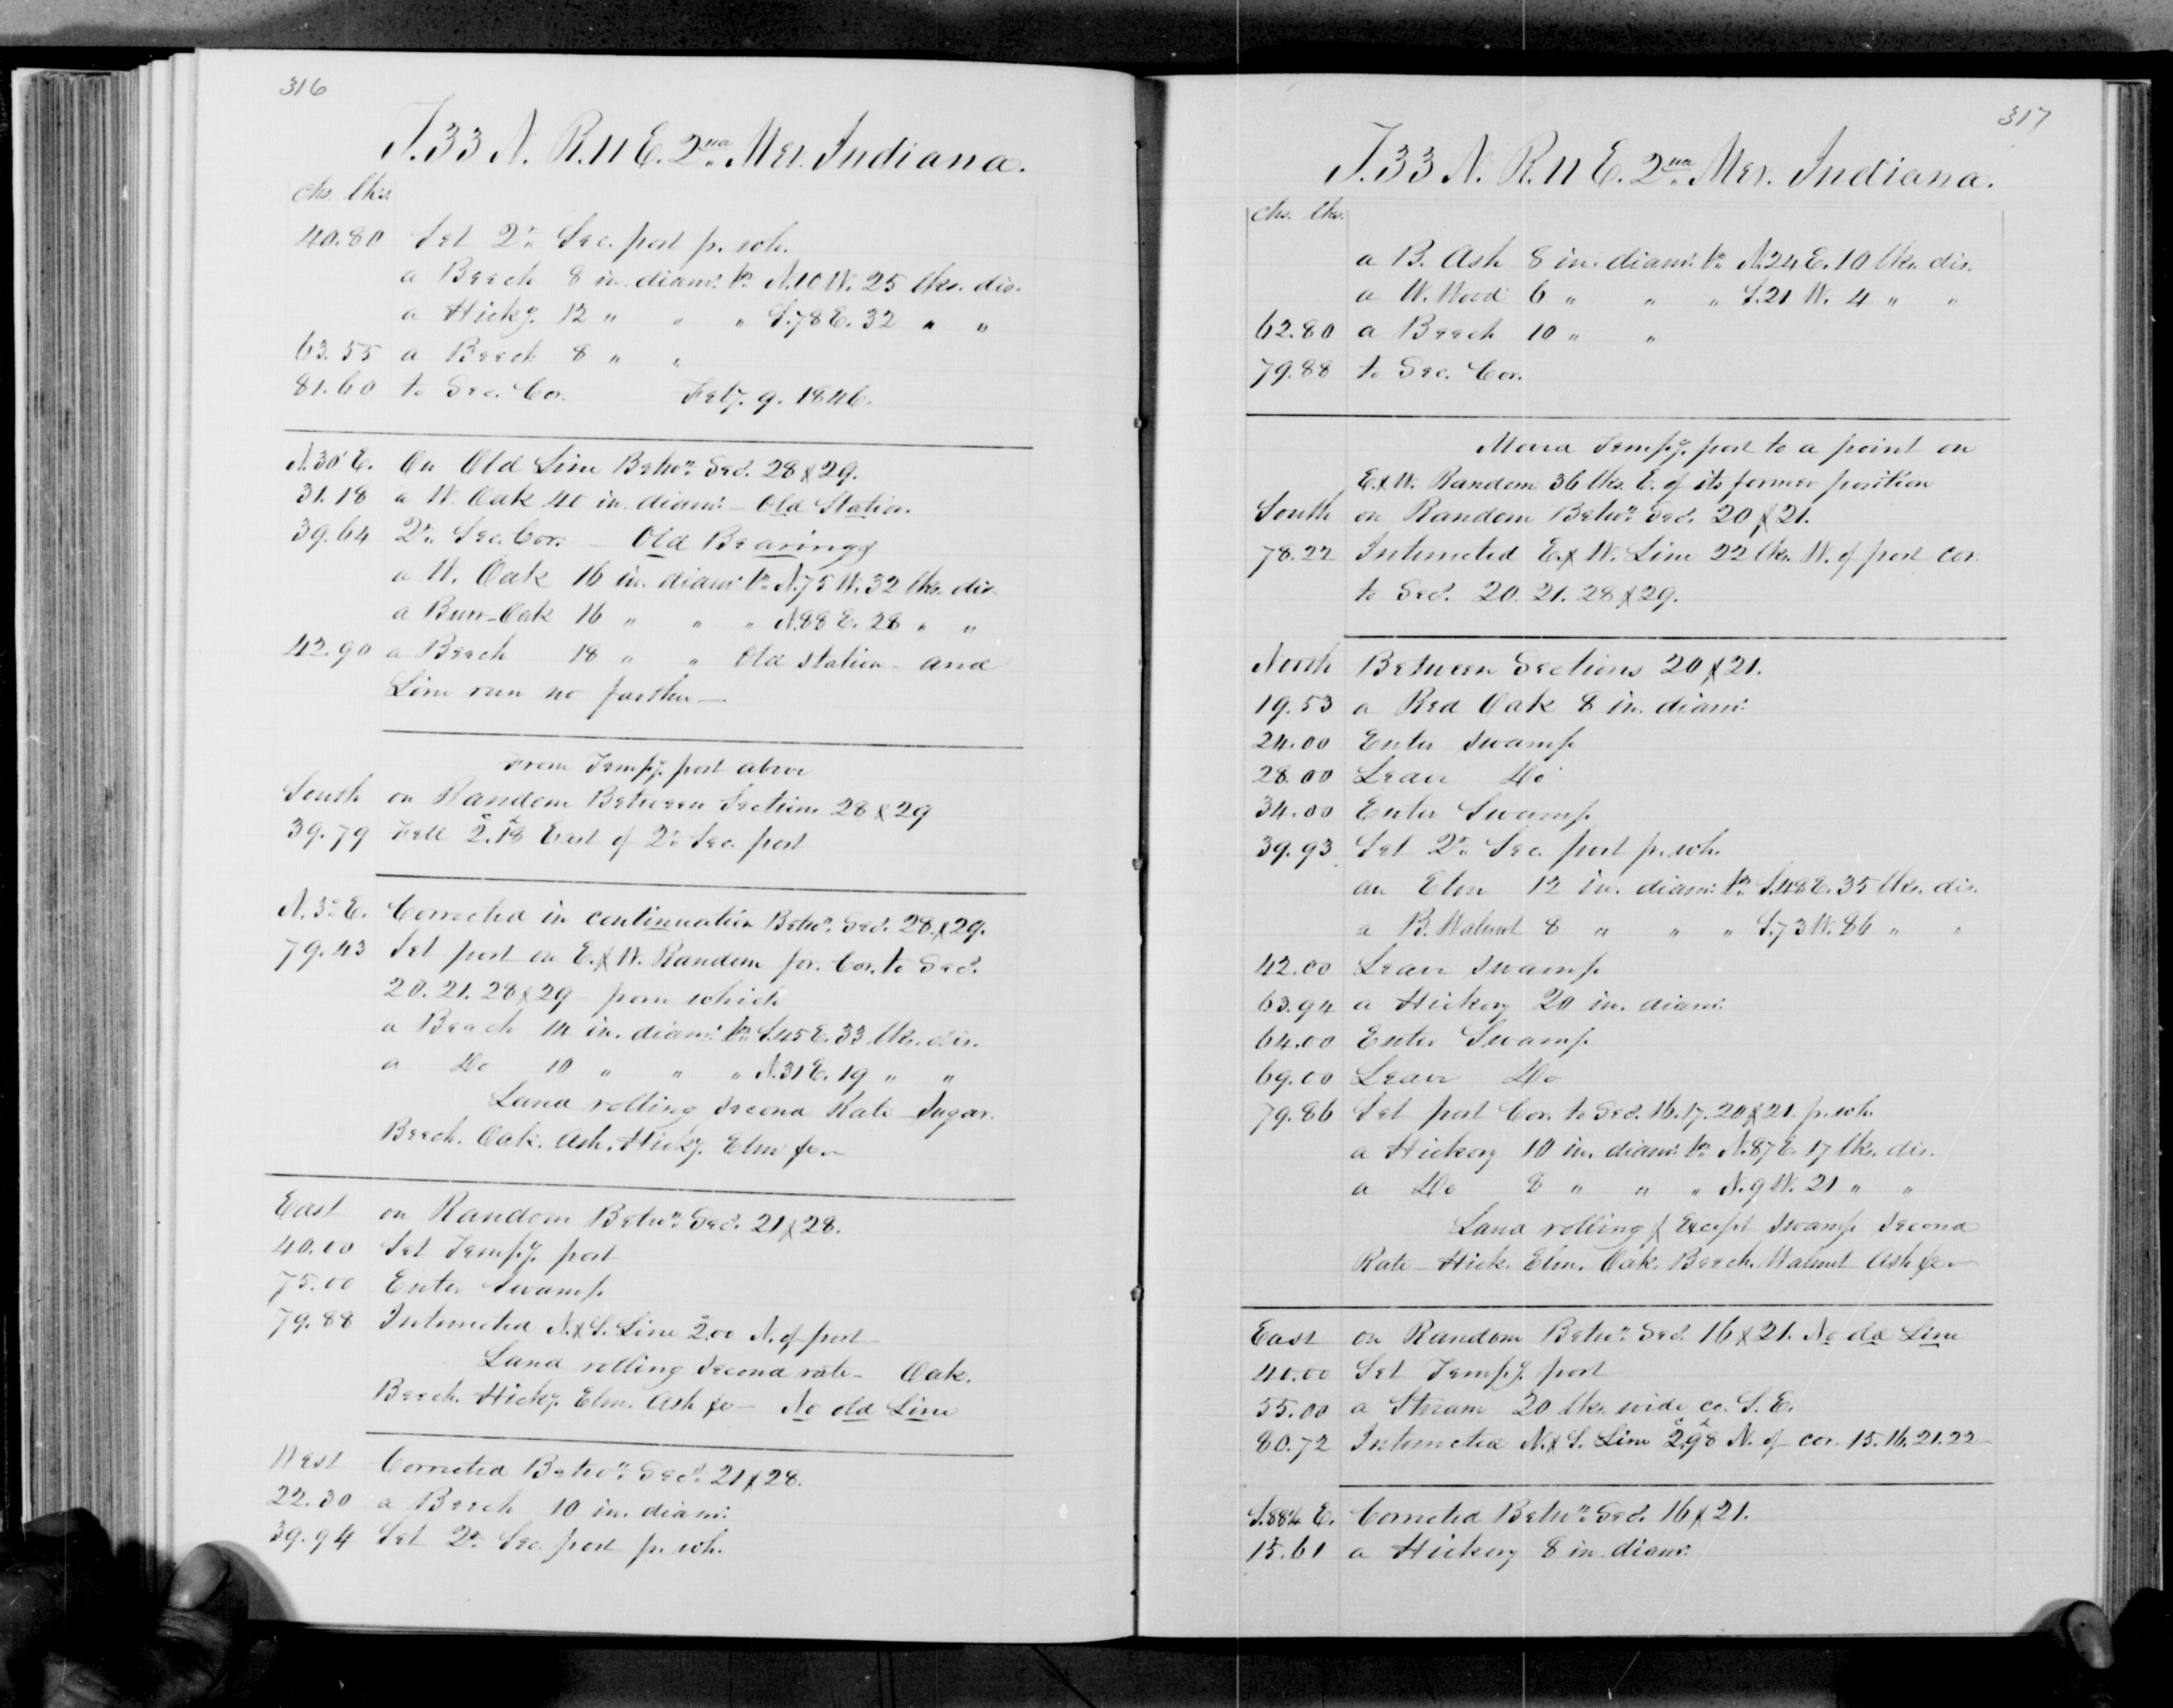 316
T.33 N. R.11 E. 2nd. Mer. Indiana.
chs. lks.
40.80 Set qr. Sec. post fr. wh.
a Beech 8 in. diamr. br. N.10 W. 25 lks. dis.
a Hicky. 12 " " " S.78 E. 32 " "
63.55 a Beech 8 " "
81.60 to Sec. Cor. Feby. 9. 1846.
N.30' E. On Old Line Betwn. Secs. 28 & 29.
31.18 a W. Oak 40 in. diamr. — Old Station.
39.64 qr. Sec. Cor. — Old Bearings
a W. Oak 16 in. diamr. br. N.75 W. 32 lks. dis.
a Burr-Oak 16 " " " N.88 E. 28 " "
42.90 a Beech 18 " " Old station — and
Line run no further —
From Tempy. post above
South on Random Between Sections 28 & 29
39.79 Fell 2.18 East of qr. Sec. post
N.3° E. Corrected in continuation Betwn. Secs. 28 & 29.
79.43 Set post on E. & W. Random for Cor. to Secs.
20. 21. 28 & 29 — from which
a Beech 14 in. diamr. br. S.45 E. 33 lks. dis.
a Do 10 " " " N.31 E. 19 " "
Land rolling Second Rate Sugar.
Beech. Oak. Ash. Hicky. Elm &c —
East on Random Betwn. Secs. 21 & 28.
40.00 Set Tempy. post
75.00 Enter Swamp
79.88 Intersected N. & S. Line 2.00 N. of post
Land rolling Second rate — Oak.
Beech. Hicky. Elm. Ash &c — No old Line
West Corrected Betwn. Secs. 21 & 28.
22.30 a Beech 10 in. diamr.
39.94 Set qr. Sec. post fr. wh.
317
T.33 N. R.11 E. 2nd. Mer. Indiana.
chs. lks.
a B. Ash 8 in. diamr. br. N.24 E. 10 lks. dis.
a W. Wood 6 " " " S.21 W. 4 " "
62.80 a Beech 10 " "
79.88 to Sec. Cor.
Moved Tempy. post to a point on
E. & W. Random 36 lks. E. of its former position
South on Random Betwn. Secs. 20 & 21.
78.22 Intersected E. & W. Line 22 lks. W. of post cor.
to Secs. 20. 21. 28 & 29.
North Between Sections 20 & 21.
19.53 a Red Oak 8 in. diamr.
24.00 Enter Swamp
28.00 Leave Do
34.00 Enter Swamp
39.93 Set qr. Sec. post fr. wh.
an Elm 12 in. diamr. br. S.48 E. 35 lks. dis.
a B. Walnut 8 " " " S.73 W. 86 " "
42.00 Leave Swamp
63.94 a Hickory 20 in. diamr.
64.00 Enter Swamp
69.00 Leave Do
79.86 Set post Cor. to Secs. 16. 17. 20 & 21. fr. wh.
a Hickory 10 in. diamr. br. N.87 E. 17 lks. dis.
a Do 8 " " " N.9 W. 21 " "
Land rolling & Except Swamp Second
Rate — Hick. Elm. Oak. Beech. Walnut Ash &c —
East on Random Betwn. Secs. 16 & 21. No old Line
40.00 Set Tempy. post
55.00 a Stream 20 lks. wide co. S. E.
80.72 Intersected N. & S. Line 2.98 N. of cor. 15. 16. 21. 22 —
S.88¼ E. Corrected Betwn. Secs. 16 & 21.
15.61 a Hickory 8 in. diamr.